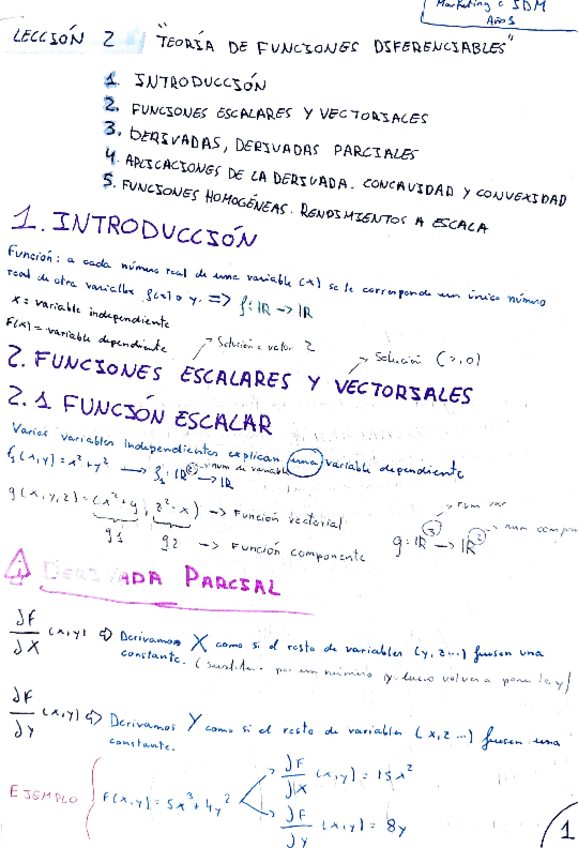 Marketing e SDM
Año 1
LECCIÓN 2 "TEORÍA DE FUNCIONES DIFERENCIABLES"
1. INTRODUCCIÓN
2. FUNCIONES ESCALARES Y VECTORIALES
3. DERIVADAS, DERIVADAS PARCIALES
4. APLICACIONES DE LA DERIVADA. CONCAVIDAD Y CONVEXIDAD
5. FUNCIONES HOMOGÉNEAS. RENDIMIENTOS A ESCALA
1. INTRODUCCIÓN
Función: a cada número real de una variable (x) se le corresponde un único número
real de otra varialbe f(x) o y. => f: IR -> IR
x = variable independiente
F(x) = variable dependiente
Solución = valor 2
Solución (>,0)
2. FUNCIONES ESCALARES Y VECTORIALES
2.1 FUNCIÓN ESCALAR
Varias variables independientes explican una variable dependiente
f₁(x,y) = x² + y² -> f₁: IR² -> IR
num de variables
g(x,y,z) = (x²+y, z²-x) -> Función vectorial
g1 g2 -> Función componente
g: IR³ -> IR²
num var
num compon
DERIVADA PARCIAL
∂F/∂X (x,y) => Derivamos X como si el resto de variables (y, z...) fuesen una
constante. (sustit. por un número y luego volver a poner la y)
∂F/∂y (x,y) => Derivamos Y como si el resto de variables (x, z...) fuesen una
constante.
EJEMPLO F(x,y) = 5x³ + 4y²
∂F/∂X (x,y) = 15x²
∂F/∂y (x,y) = 8y
1